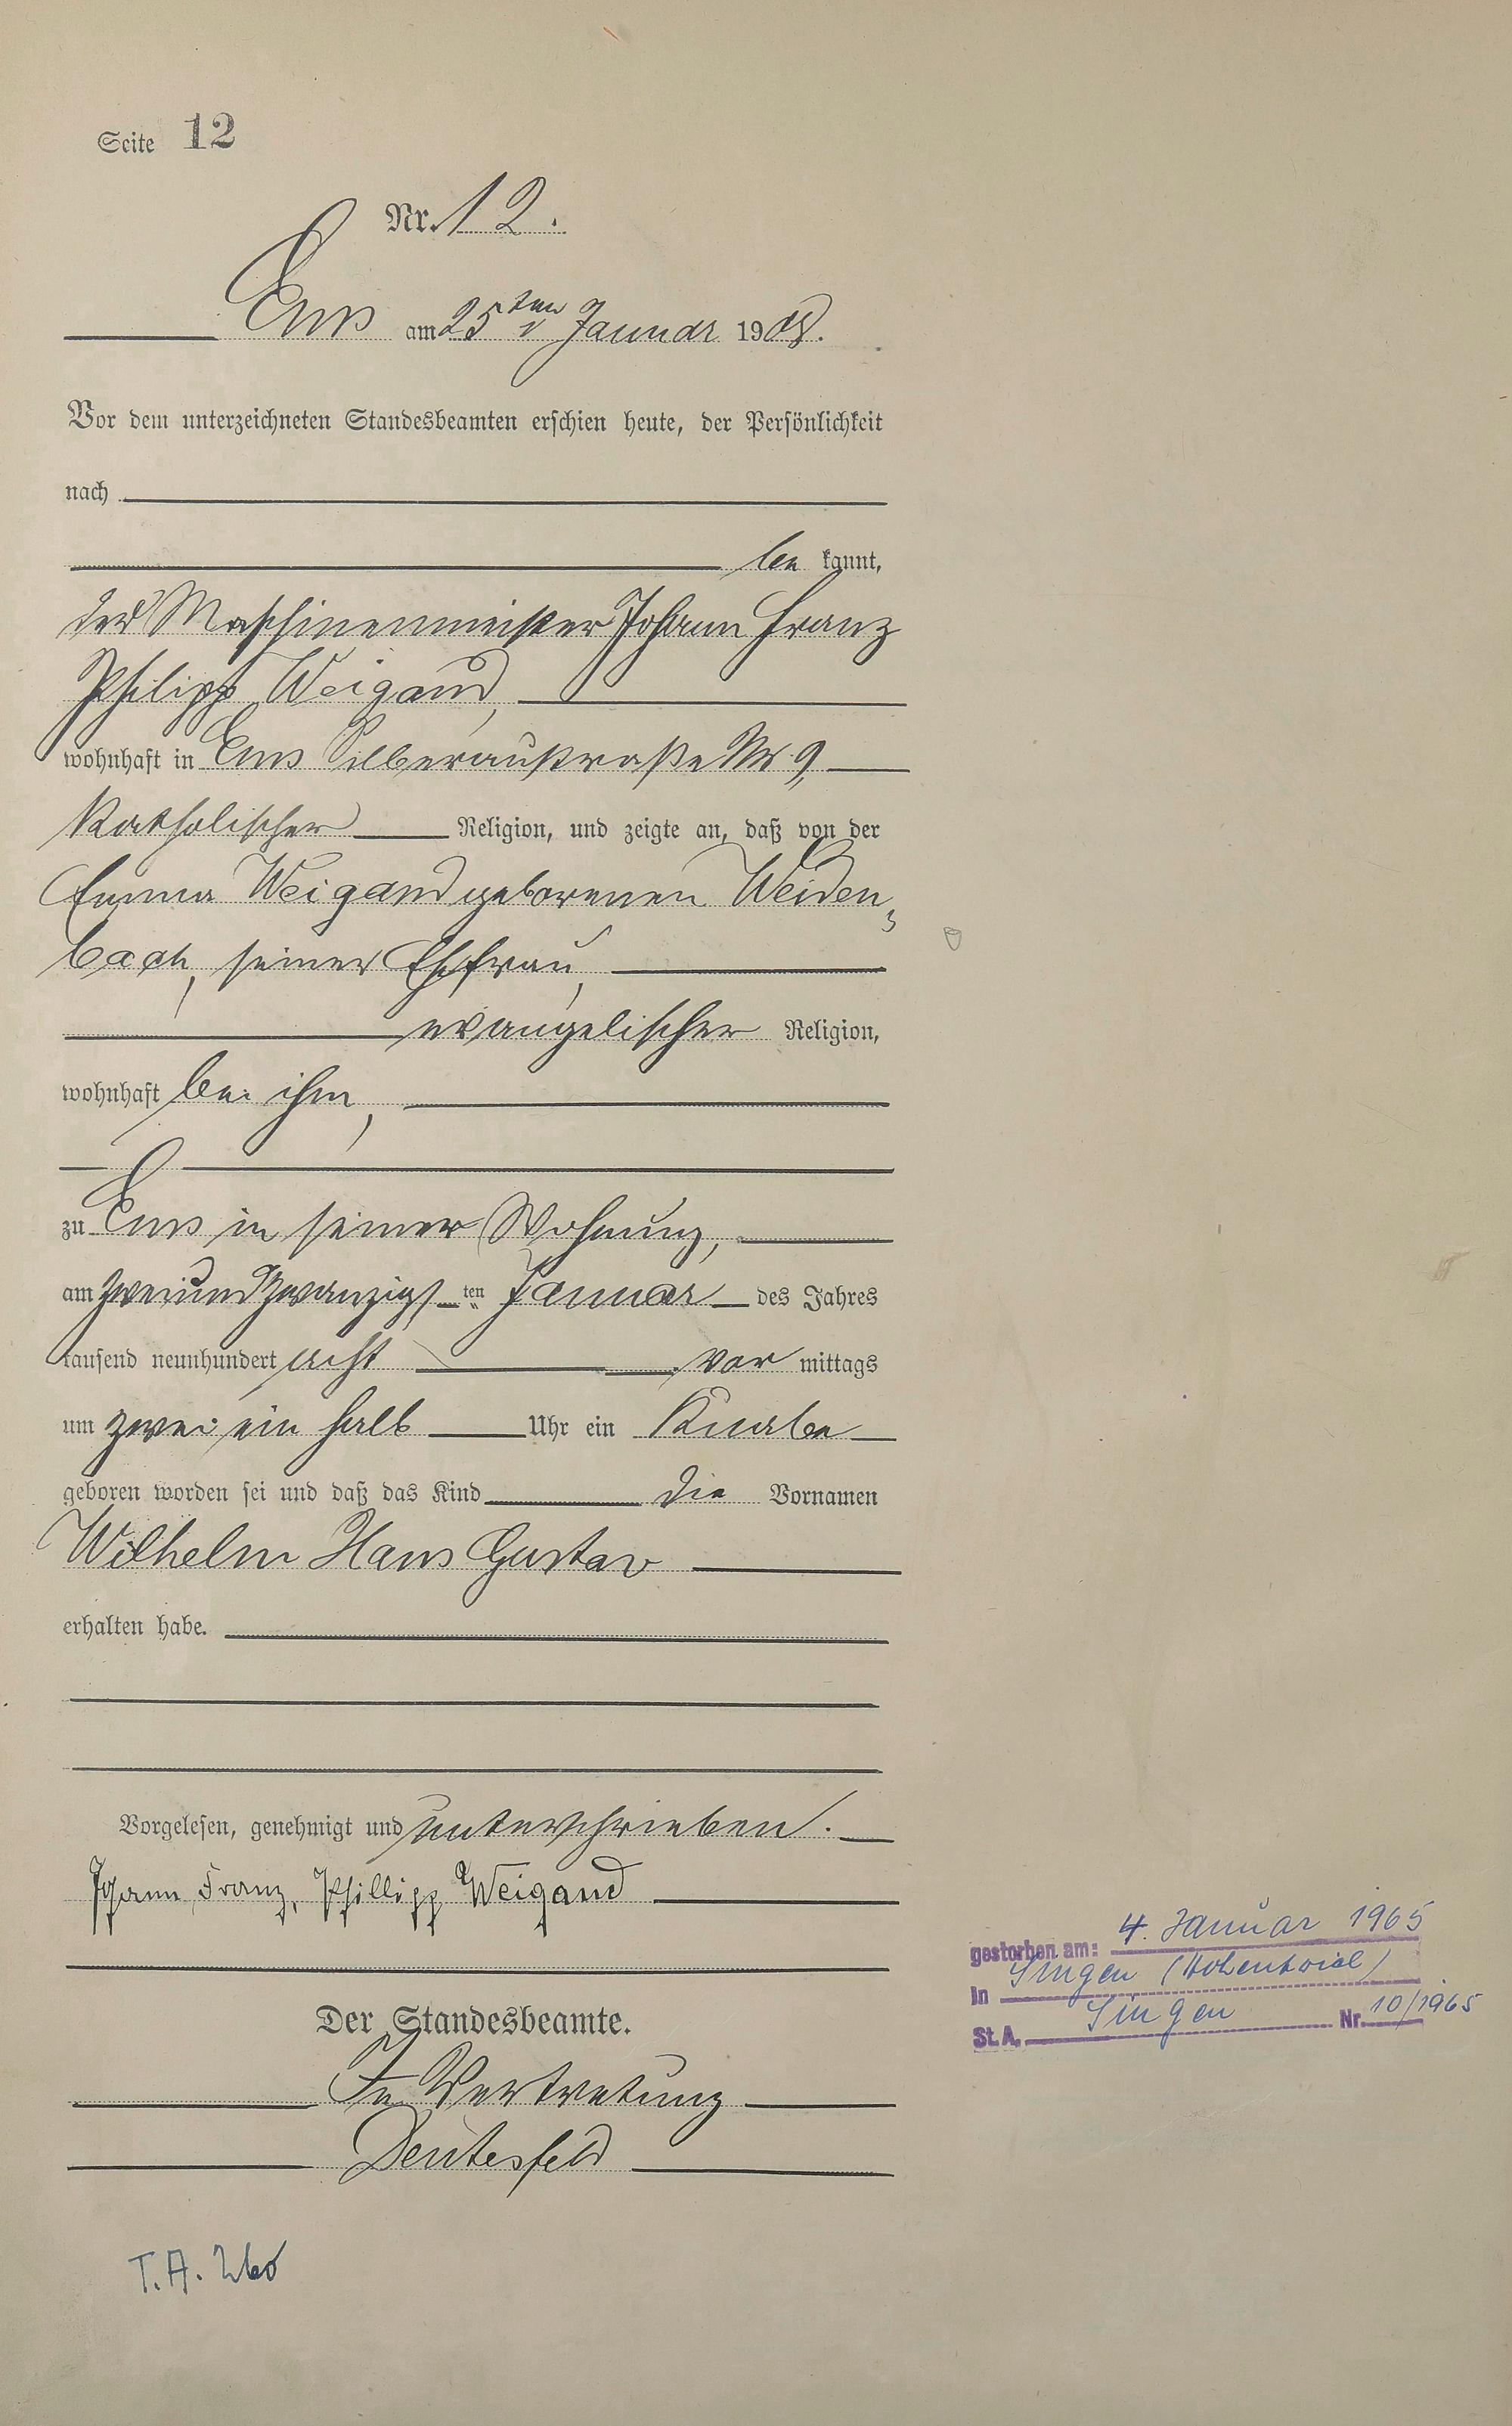 Seite 12
Nr. 12.
Ems am 25ten Januar 1908.
Vor dem unterzeichneten Standesbeamten erschien heute, der Persönlichkeit
nach
be kannt,
der Maschinenmeister Johann Franz
Philipp Weigand,
wohnhaft in Ems Silberaustraße Nr. 9,
katholischer Religion, und zeigte an, daß von der
Emma Weigand geborenen Weiden=
bach, seiner Ehefrau,
evangelischer Religion,
wohnhaft bei ihm,
zu Ems in seiner Wohnung,
am zweiundzwanzigsten Januar des Jahres
tausend neunhundert acht vor mittags
um zwei ein halb Uhr ein Knabe
geboren worden sei und daß das Kind die Vornamen
Wilhelm Hans Gustav
erhalten habe.
Vorgelesen, genehmigt und unterschrieben.
Johann, Franz, Phillipp Weigand
Der Standesbeamte.
In Vertretung
Deutesfeld
gestorben am: 4. Januar 1965
in Singen (Hohentwiel)
St. A. Singen Nr. 10/1965
T.A.